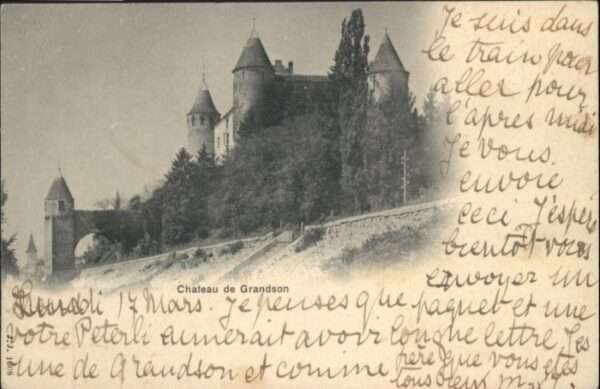 Je suis dans
le train pour
aller pour
l'après midi
Je vous
envoie
ceci J'espère
bientôt vous
envoyer un
Chateau de Grandson
Lundi 17 Mars. Je penses que paquet et une
votre Peterli aimerait avoir longue lettre, J'es
une de Grandson et comme père que vous êtes
tous bien